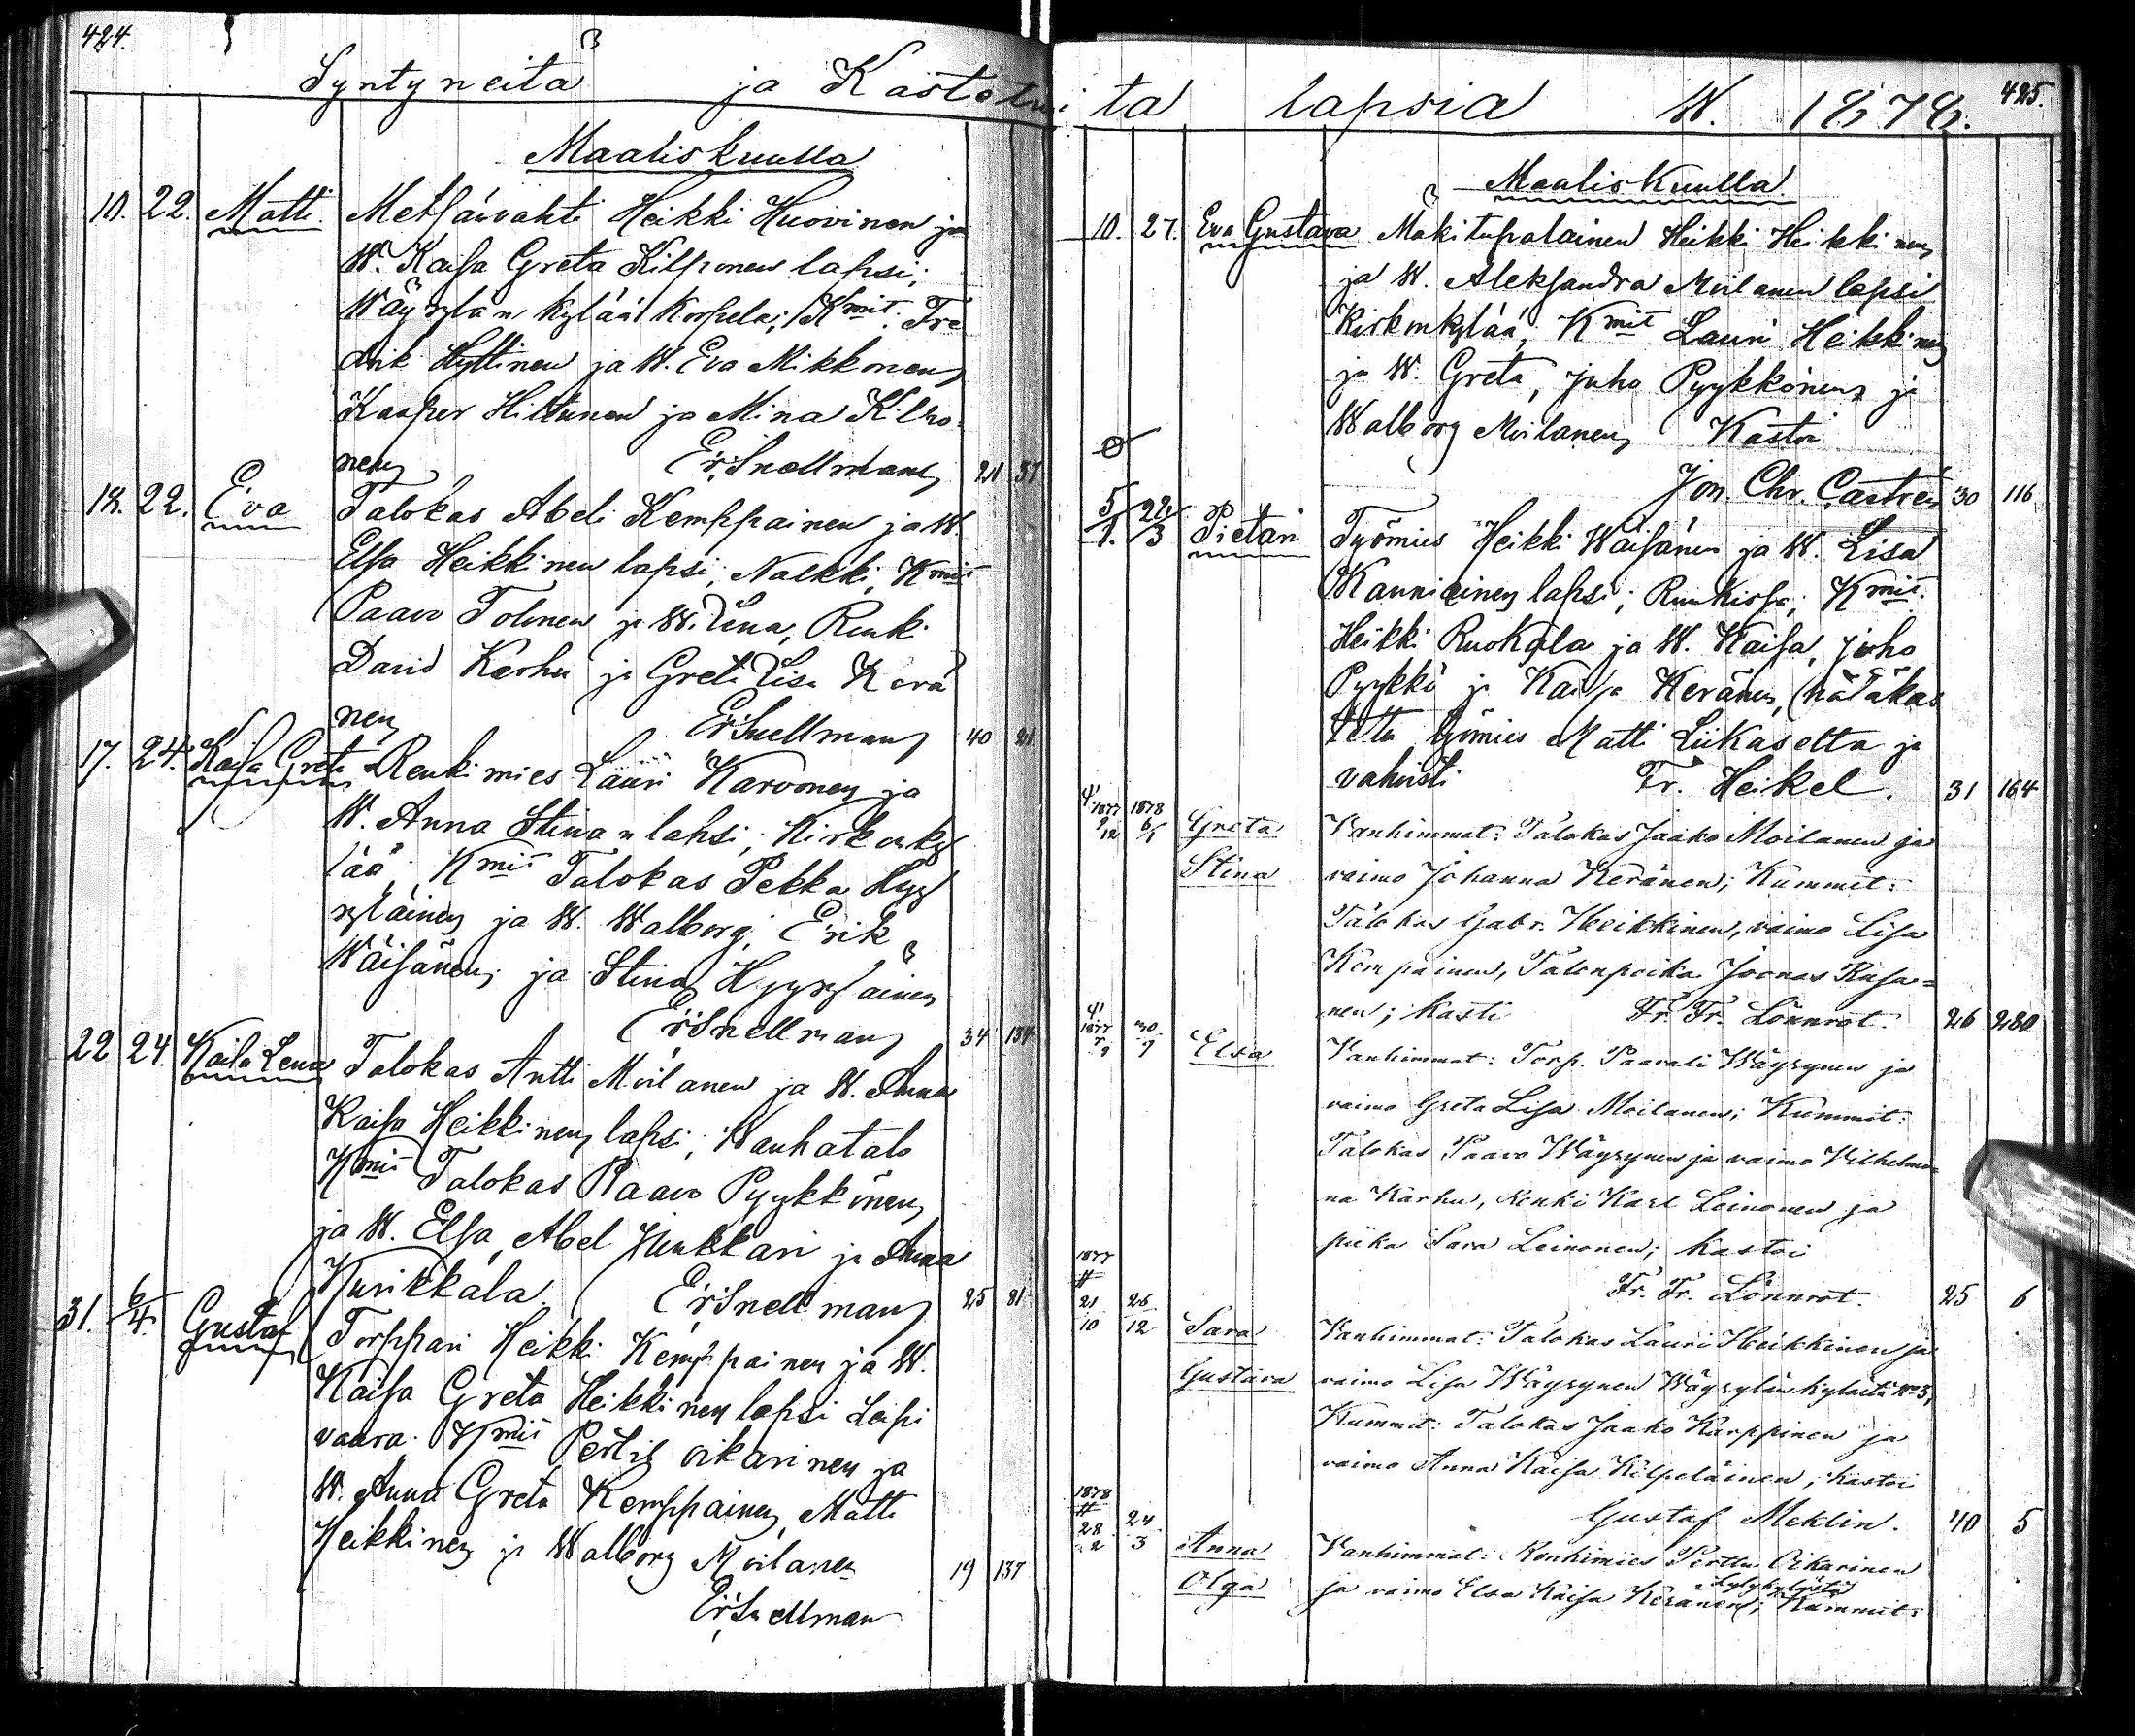 424.
Syntyneitä ja Kastetui
Maaliskuulla
10. 22. Matti Metsänvahti Heikki Huovinen ja
W. Kaisa Greta Kilponen lapsi;
Wäyrylän kylää Korpela; Kmit. Fre
drik Hyttinen ja W. Eva Mikkonen,
Kasper Hiltunen ja Mina Kilpo-
nen Er. Snellman 24 37
18. 22. Eva Talokas Abeli Kemppainen ja W.
Elsa Heikkinen lapsi, Nalkki, Kmit
Paavo Tolonen ja W. Lena, Renki
David Karhu ja Greta Lisa Kerä
nen Er. Snellman 40 21
17. 24. Kaisa Greta Renkimies Lauri Karvonen ja
W. Anna Stina n lapsi, Kirkonky
lää, Kmit Talokas Pekka Hyy
ryläinen ja W. Walborg, Erik
Wäisänen, ja Stina Hyyryläinen
Er. Snellman 34 134
22 24. Kaisa Lena Talokas Antti Moilanen ja W. Anna
Kaisa Heikkinen lapsi, Wanhatalo
Kmit Talokas Paavo Pyykkönen,
ja W. Elsa, Abel Kinkkari ja Anna
Kurikkala. Er. Snellman 25 81
31. 6/4. Gustaf Torppari Heikki Kemppainen ja W.
Kaisa Greta Heikkinen lapsi Leipi
vaara. Kmit Pertil Oikarinen ja
W. Anna Greta Kemppainen, Matti
Heikkinen ja Walborg Moilanen
19 137
Er. Snellman
425.
ta lapsia W. 1878.
Maaliskuulla
10. 27. Eva Gustava Mäkitupalainen Heikki Heikkinen
ja W. Aleksandra Moilanen lapsi
Kirkonkylää, Kmit Lauri Heikkinen
ja W. Greta, Juho Pyykkönen ja
Walborg Moilanen, Kastoi
Jon. Chr. Castrén 30 116
5/1. 22/3 Pietari Työmies Heikki Wäisänen ja W. Lisa
Kanniainen lapsi; Ruukissa; Kmit.
Heikki Ruokola ja W. Kaisa, Juho
Pyykkö ja Kaisa Keränen, (hätäkas
tettu työmies Matti Liikaselta ja
vahvisti Fr. Heikel. 31 164
1877 9/12 1878 6/1 Greta Vanhimmat: Talokas Jaako Moilanen ja
Stina vaimo Johanna Keränen; Kummit:
Talokas Gabr. Heikkinen, vaimo Lisa
Kempainen, Talonpoika Joonas Kusa=
nen; kasti Fr. Fr. Lönnrot. 26 280
1877 7/9 30/9 Elsa Vanhimmat: Torp. Paavali Wäyrynen ja
vaimo Greta Lisa Moilanen; Kummit:
Talokas Paavo Wäyrynen ja vaimo Vilhelmi=
na Karhu, Renki Karl Leinonen ja
piika Sara Leinonen; kastoi
Fr. Fr. Lönnrot. 25 6
1877 21/10 26/12 Sara Vanhimmat: Talokas Lauri Heikkinen ja
Gustava vaimo Lisa Wäyrynen Wäyrylän kylästä No 3,
Kummit: Talokas Jaako Karppinen ja
vaimo Anna Kaisa Kilpeläinen; kastoi
Gustaf Meklin. 40 5
1878 28/2 24/3 Anna Vanhimmat: Renkimies Perttu Oikarinen
Olga ja vaimo Elsa Kaisa Keränen; Kummit: